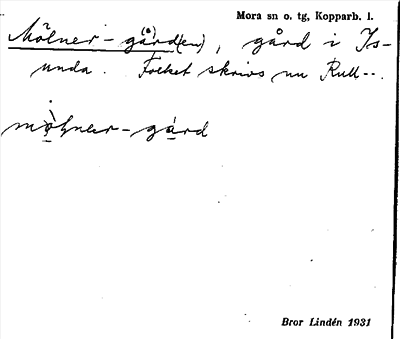 Mora sn o. tg, Kopparb. l.
Mölner-gård(en), gård i Is-
unda. Folket skrivs nu Rull--.
mòlner-gård
Bror Lindén 1931